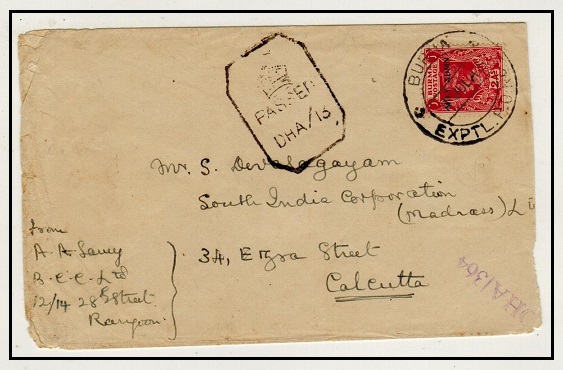 PASSED
DHA/13
BURMA
EXPTL. P.O.
BURMA
POSTAGE
Mr. S. Devasagayam
South India Corporation
(Madras) Ltd
34, Ezra Street
Calcutta
From
A. A. Samy
B. C. C. Ltd
12/14 28th Street
Rangoon
DHA1364